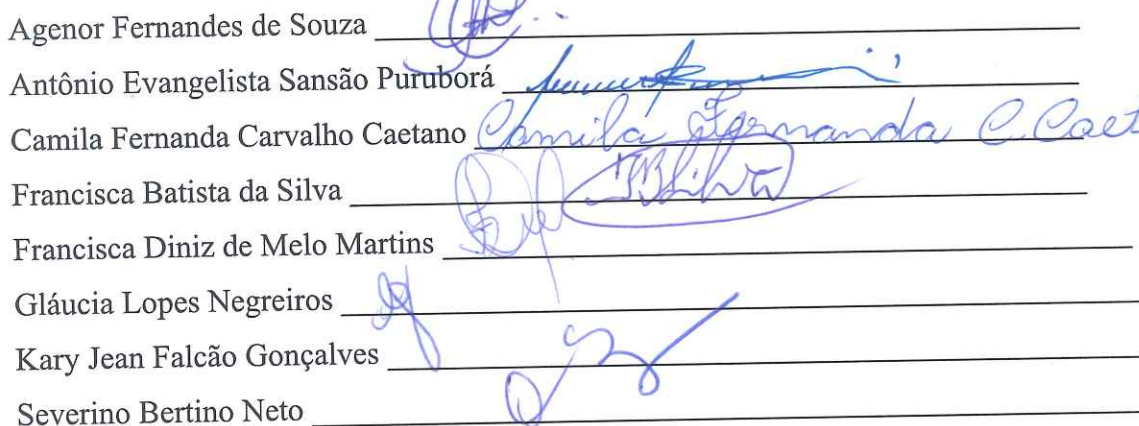 Agenor Fernandes de Souza
Antônio Evangelista Sansão Puruborá
Camila Fernanda Carvalho Caetano Camila Fernanda C. Caet
Francisca Batista da Silva FBSilva
Francisca Diniz de Melo Martins
Gláucia Lopes Negreiros
Kary Jean Falcão Gonçalves
Severino Bertino Neto